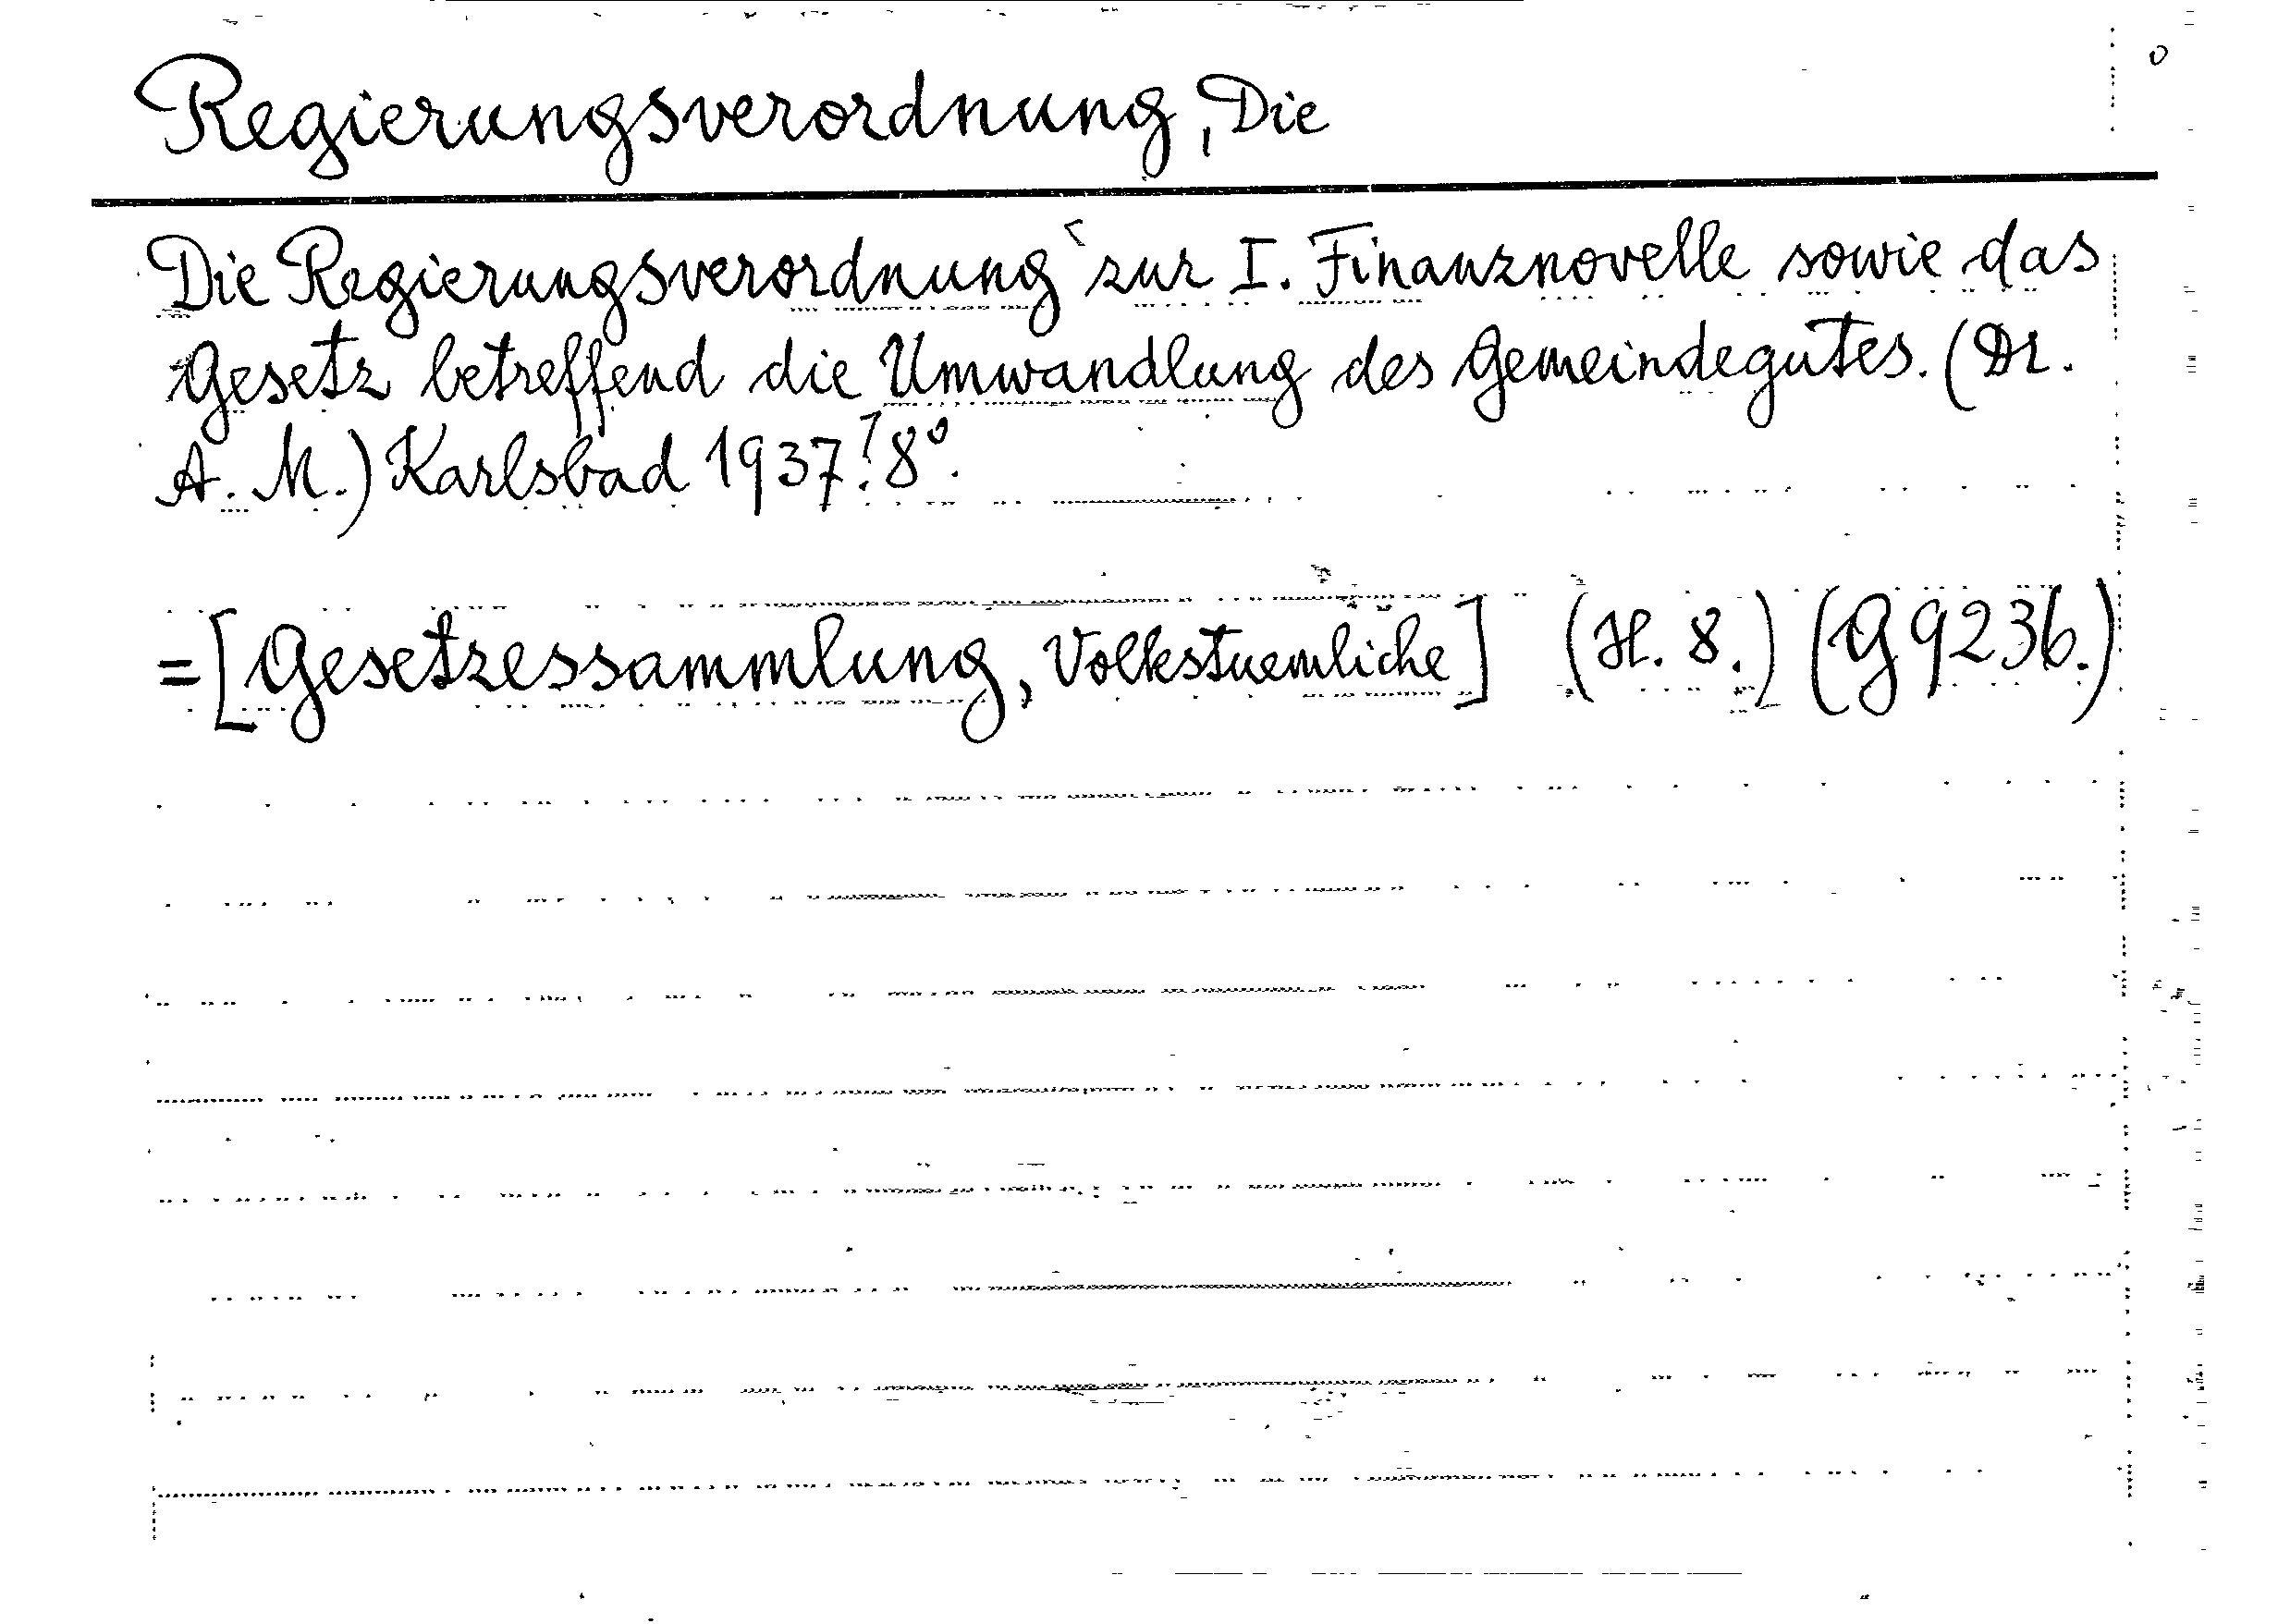 Regierungsverordnung, Die
Die Regierungsverordnung zur I. Finanznovelle sowie das
Gesetz betreffend die Umwandlung des Gemeindegutes. (Dr.
A. M.) Karlsbad 1937. 8°.
=[Gesetzessammlung, Volkstuemliche] (H. 8.) (G 9236.)